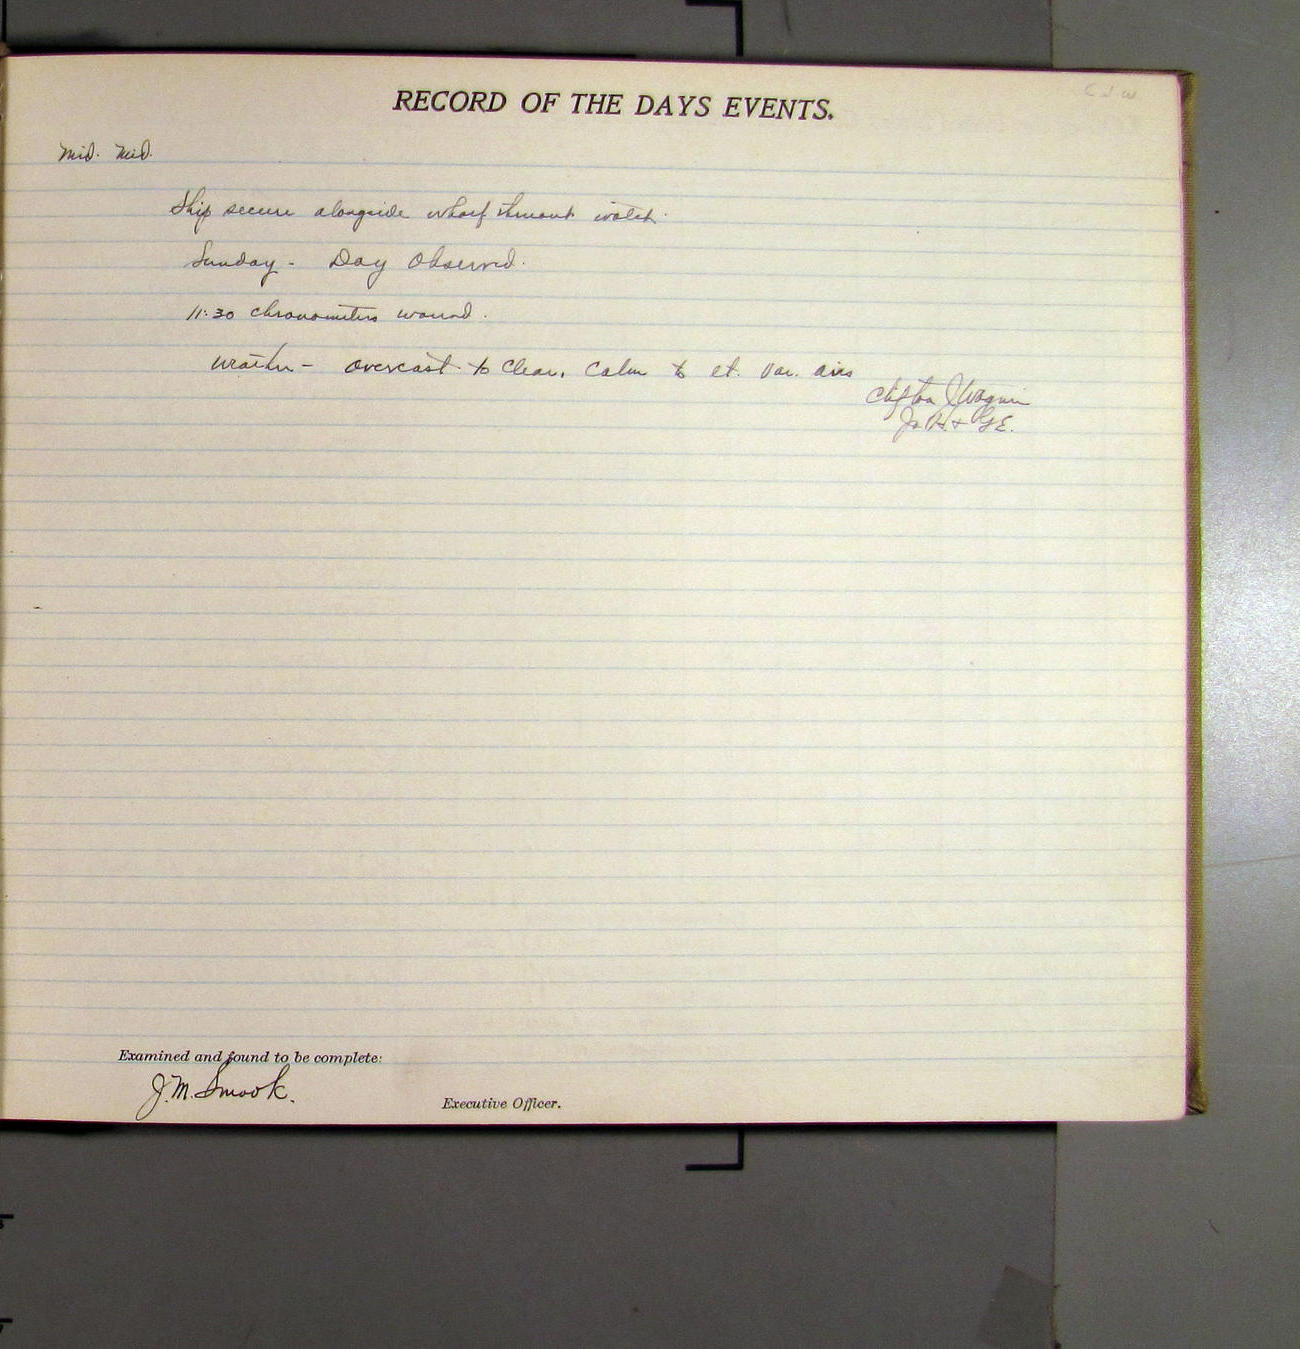 C J W
RECORD OF THE DAYS EVENTS.
Mid. Mid.
Ship secure alongside wharf thruout watch.
Sunday - Day Observed.
11:30 chronometers wound.
Weather - overcast to clear, Calm to lt. var. airs
Clifton J Wagner
Jr. H. & G. E.
Examined and found to be complete:
J. M. Smook.
Executive Officer.